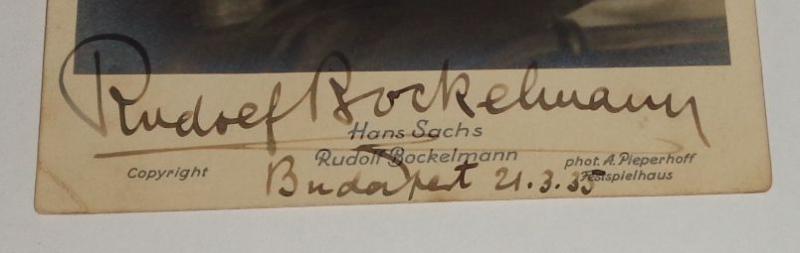 Rudolf Bockelmann
Hans Sachs
Rudolf Bockelmann
Copyright
phot. A. Pieperhoff
Festspielhaus
Budapest 21.3.35